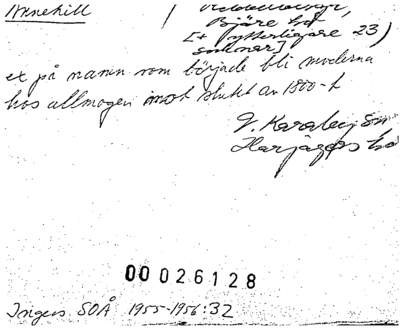 Annehill /
Bjäre hd
[+ ytterligare 23)
socknar]
ex på namn som började bli moderna
hos allmogen mot slutet av 1800-t
V. Karaby sn
Harjagers hd
00026128
Ingers SOÅ 1955-1956:32